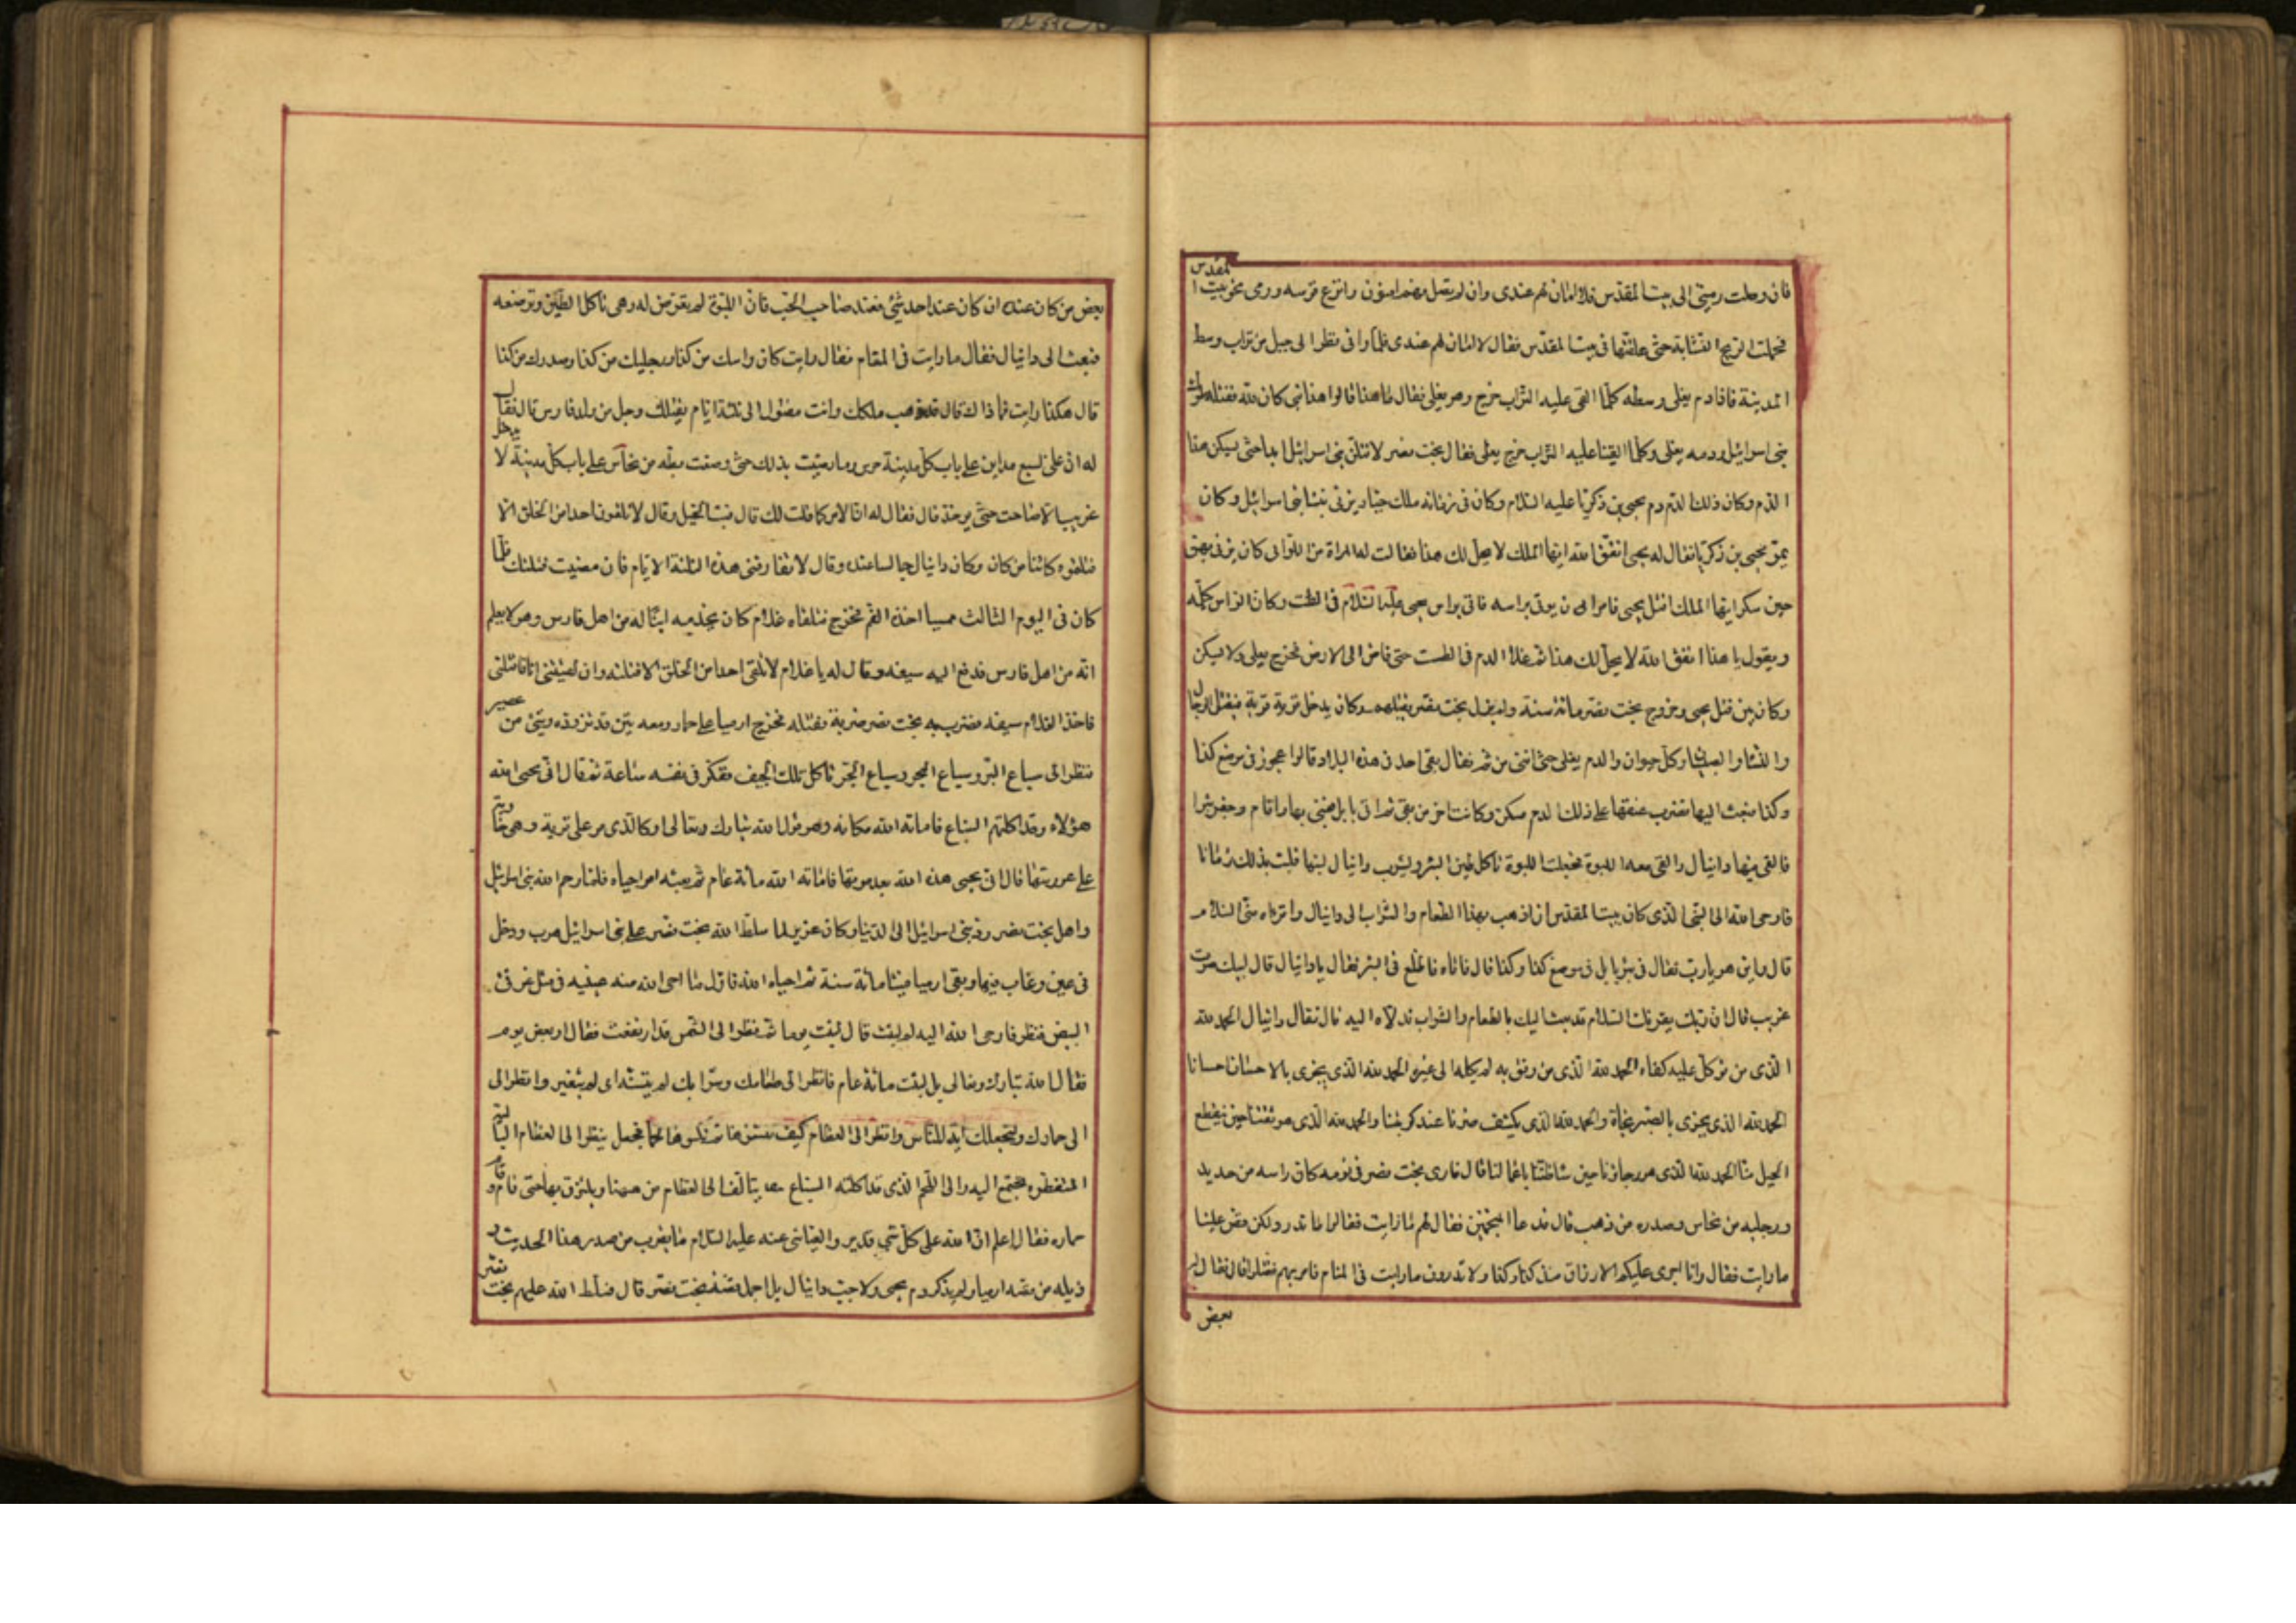 فان وصلت رميتى الى بيت المقدس فلا امان لهم عندى وان لم يصل فهم امنون وانتزع قوسه ورمى نحو بيت المقدس
فحملت الريح النشابة حتى علقتها فى بيت المقدس فقال لا امان لهم عندى فلما وافى نظر الى جبل من تراب وسط
المدينة فاذا دم يغلى وسطه كلما القى عليه التراب خرج وهو يغلى فقال ما هذا قالوا هذا نبى كان لله فقتله ملوك
بنى اسرائيل ودمه يغلى وكلما القينا عليه التراب خرج يغلى فقال بخت نصر لاقتلن بنى اسرائيل ابدا حتى يسكن هذا
الدم وكان ذلك الدم دم يحيى بن زكريا عليه السلام وكان فى زمانه ملك جبار يزنى بنسا بنى اسرائيل وكان
يمر بيحيى بن زكريا فقال له يحيى اتق الله ايها الملك لا يحل لك هذا فقالت له امراة من اللواتى كان يزنى بهن
حين سكر ايها الملك اقتل يحيى فامر ان يوتى براسه فاتى براس يحيى عليه السلام فى الطست وكان الراس يكلمه
ويقول يا هذا اتق الله لا يحل لك هذا ثم غلا الدم فى الطست حتى فاض الى الارض فخرج يغلى ولا يسكن
وكان بين قتل يحيى وخروج بخت نصر مائة سنة ولم يزل بخت نصر يقتلهم وكان يدخل قرية قرية فيقتل الرجال
والنسا والصبيان وكل حيوان والدم يغلى حتى افنى من ثم فقال بقى احد فى هذه البلاد قالوا عجوز فى موضع كذا
وكذا فبعث اليها فضرب عنقها على ذلك الدم فسكن وكانت اخر من بقى ثم اتى بابل فبنى بها واقام وحفر بئرا
فالقى فيها دانيال والقى معه اللبوة فجعلت اللبوة تاكل طين البئر ويشرب دانيال لبنها فلبث بذلك زمانا
فاوحى الله الى النبى الذى كان ببيت المقدس ان اذهب بهذا الطعام والشراب الى دانيال واقراه منى السلام
قال واين هو يا رب فقال فى بئر بابل فى موضع كذا وكذا قال فاتاه فاطلع فى البئر فقال يا دانيال قال لبيك صوت
غريب قال ان ربك يقرئك السلام قد بعث اليك بالطعام والشراب فدلاه اليه قال فقال دانيال الحمد لله
الذى من توكل عليه كفاه الحمد لله الذى من وثق به لم يكله الى غيره الحمد لله الذى يجزى بالاحسان احسانا
الحمد لله الذى يجزى بالصبر نجاة والحمد لله الذى يكشف ضرنا عند كربتنا والحمد لله الذى هو ثقتنا حين ينقطع
الحيل منا الحمد لله الذى هو رجاؤنا حين ساء ظننا باعمالنا قال فارى بخت نصر فى نومه كان راسه من حديد
ورجليه من نحاس وصدره من ذهب قال فدعا المنجمين فقال لهم ما رايت فقالوا ما ندر ولكن قص علينا
ما رايت فقال وانا اجرى عليكم الارزاق منذ كذا وكذا ولا تدرون ما رايت فى المنام فامر بهم فقتلوا قال فقال له
بعض
بعض من كان عنده ان كان عند احد شئ فعند صاحب الجب فان اللبوة لم تعرض له وهى تاكل الطين وترضعه
فبعث الى دانيال فقال ما رايت فى المنام فقال رايت كان راسك من كذا ورجليك من كذا وصدرك من كذا
قال هكذا رايت فما ذاك قال قد ذهب ملكك وانت مقتول الى ثلثة ايام يقتلك رجل من ولد فارس قال فقال
له ان على لسبع مداين على باب كل مدينة حرس وما رضيت بذلك حتى وضعت بطة من نحاس على باب كل مدينة لا يدخل
غريب الا صاحت حتى يوخذ قال فقال له ان الامر كما قلت لك قال فبث الخيل وقال لا تلقون احدا من الخلق الا
قتلتموه كائنا من كان وكان دانيال جالسا عنده وقال لا تفارقنى هذه الثلثة الايام فان مضيت قتلتك فلما
كان فى اليوم الثالث ممسيا اخذه الغم فخرج فتلقاه غلام كان يخدمه ابنا له من اهل فارس وهو لا يعلم
انه من اهل فارس فدفع اليه سيفه وقال له يا غلام لا تلقى احدا من الخلق الا قتلته وان لقيتنى انا فاقتلنى
فاخذ الغلام سيفه فضرب به بخت نصر ضربة فقتله فخرج ارميا على حمار ومعه تين قد تزوده وشئ من عصير
فنظر الى سباع البر وسباع البحر وسباع الجو تاكل تلك الجيف ففكر فى نفسه ساعة ثم قال انى يحيى الله
هؤلاء وقد اكلتهم السباع فاماته الله مكانه وهو قول الله تبارك وتعالى او كالذى مر على قرية وهى خاوية
على عروشها قال انى يحيى هذه الله بعد موتها فاماته الله مائة عام ثم بعثه اى احياه فلما رحم الله بنى اسرائيل
واهلك بخت نصر رد بنى اسرائيل الى الدنيا وكان عزير لما سلط الله بخت نصر على بنى اسرائيل هرب ودخل
فى عين وغاب فيها وبقى ارميا ميتا مائة سنة ثم احياه الله فاول ما احيى الله منه عينيه فى مثل غرقئ
البيض فنظر فاوحى الله اليه كم لبثت قال لبثت يوما ثم نظر الى الشمس قد ارتفعت فقال او بعض يوم
فقال الله تبارك وتعالى بل لبثت مائة عام فانظر الى طعامك وشرابك لم يتسنه اى لم يتغير وانظر الى
الى حمارك ولنجعلك اية للناس وانظر الى العظام كيف ننشزها ثم نكسوها لحما فجعل ينظر الى العظام البالية
المنفطرة تجتمع اليه والى اللحم الذى قد اكلته السباع يتالف الى العظام من ههنا ويلتزق بها حتى قام وقام
حماره فقال اعلم ان الله على كل شئ قدير والعياشى عنه عليه السلام ما يقرب من صدر هذا الحديث
ذيله من قصة ارميا ولم يذكر دم يحيى ولا جب دانيال بل اجمل قصة بخت نصر قال فسلط الله عليهم بخت نصر